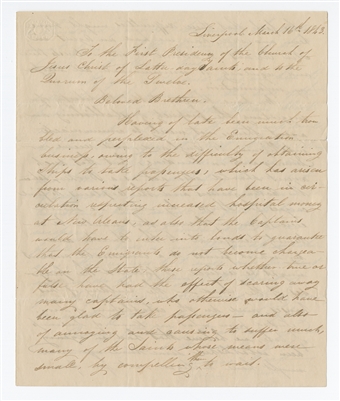 Liverpool March 16th 1843.
To the First Presidency of the Church of
Jesus Christ of Latter day Saints, and to the
Quorum of the Twelve.
Beloved Brethren.
Having of late been much trou-
bled and perplexed in the Emigration
business, owing to the difficulty of obtaining
ships to take passengers, which has arisen
from various reports that have been in cir-
culation respecting increased hospital money
at New Orleans, as also that the Captains
would have to enter into bonds to guarantee
that the Emigrants do not become chargea-
ble on the State these reports whether true or
false have had the effect of scaring away
many captains, who otherwise would have
been glad to take passengers— and also
of annoying and causing to suffer much,
many of the Saints whose means were
small, by compelling them to wait.